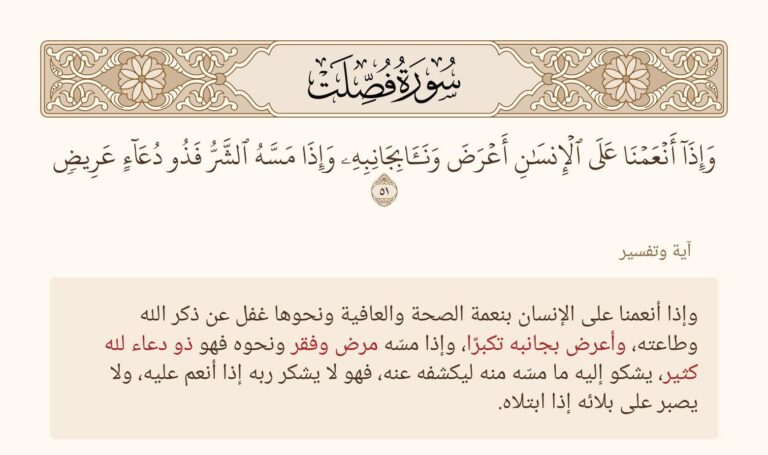 سُورَةُ فُصِّلَتْ
وَإِذَآ أَنۡعَمۡنَا عَلَى ٱلۡإِنسَٰنِ أَعۡرَضَ وَنَـَٔا بِجَانِبِهِۦ وَإِذَا مَسَّهُ ٱلشَّرُّ فَذُو دُعَآءٍ عَرِيضٖ
٥١
آية وتفسير
وإذا أنعمنا على الإنسان بنعمة الصحة والعافية ونحوها غفل عن ذكر الله
وطاعته، وأعرض بجانبه تكبرًا، وإذا مسّه مرض وفقر ونحوه فهو ذو دعاء لله
كثير، يشكو إليه ما مسّه منه ليكشفه عنه، فهو لا يشكر ربه إذا أنعم عليه، ولا
يصبر على بلائه إذا ابتلاه.